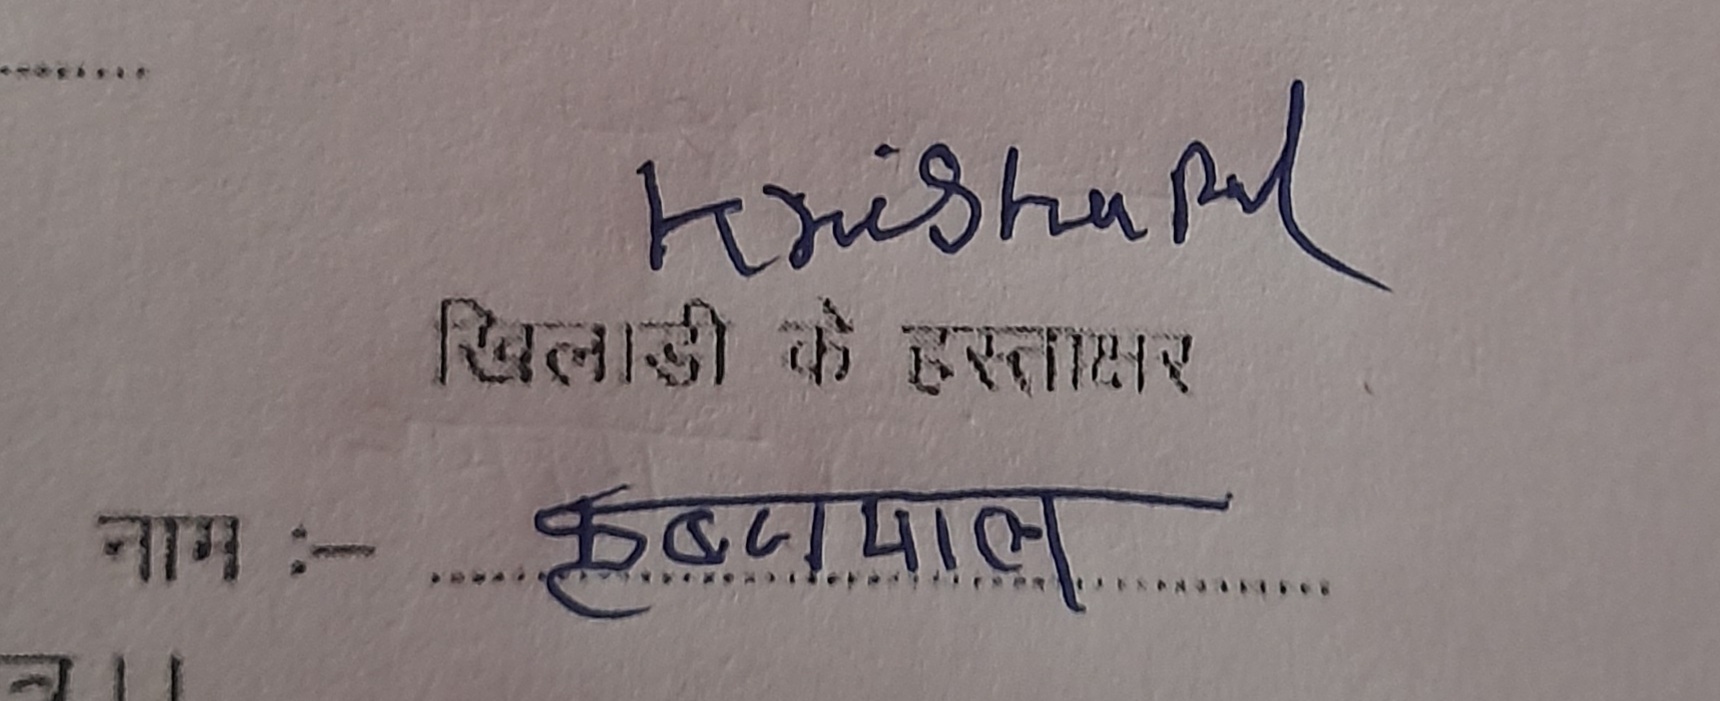 KrishaPal
खिलाडी के हस्ताक्षर
नाम :- कृष्णपाल